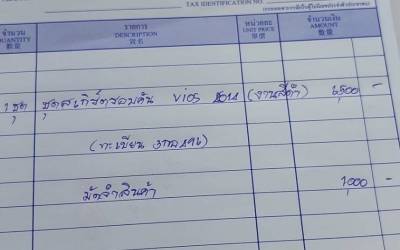 TAX IDENTIFICATION NO.
จำนวน รายการ หน่วยละ จำนวนเงิน
QUANTITY DESCRIPTION UNIT PRICE AMOUNT
數量 貨名 單價 數量
1 ชุด ชุดสเกิร์ตรอบคัน Vios 2014 (งานสีดำ) 6500 -
(ทะเบียน
มัดจำสินค้า 1000 -